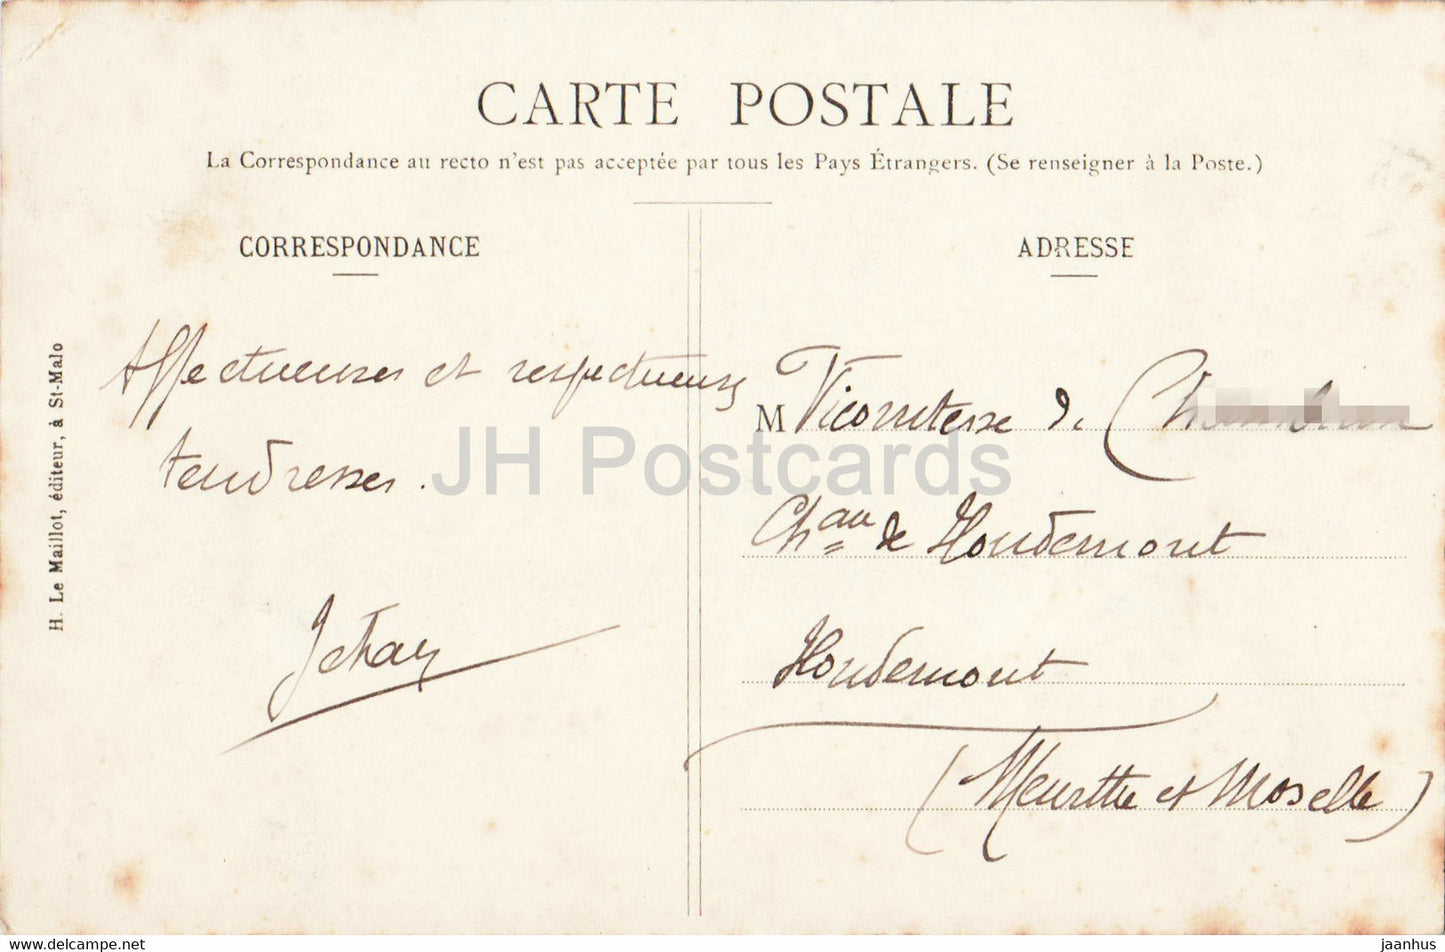 CARTE POSTALE
La Correspondance au recto n'est pas acceptée par tous les Pays Étrangers. (Se renseigner à la Poste.)
CORRESPONDANCE
Affectueuses et respectueuses
tendresses.
Jehan
ADRESSE
M Vicomtesse de
Chau de Houdemont
Houdemont
(Meurthe et Moselle)
H. Le Maillot, éditeur, à St-Malo
JH Postcards
www.delcampe.net
jaanhus